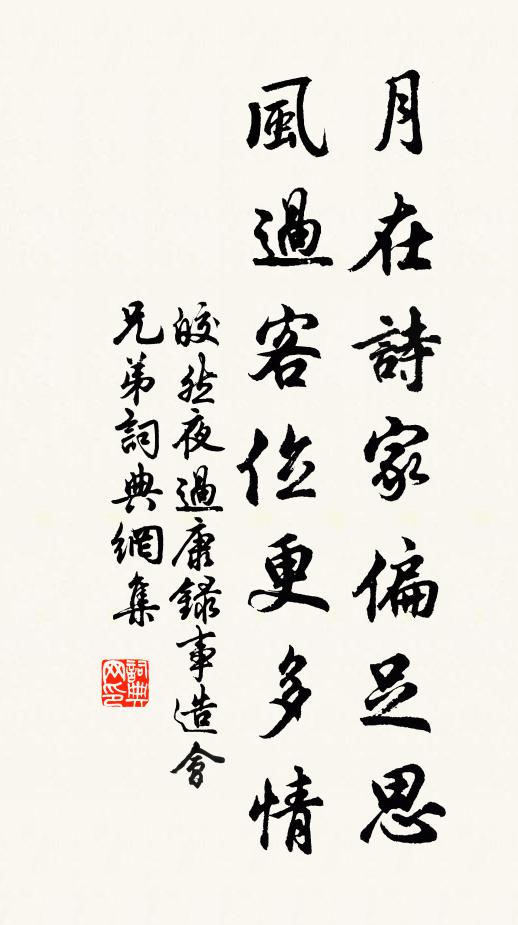 月在詩家偏足思
風過客位更多情
皎然夜過康錄事造會
兄弟詞典網集
詞典网印